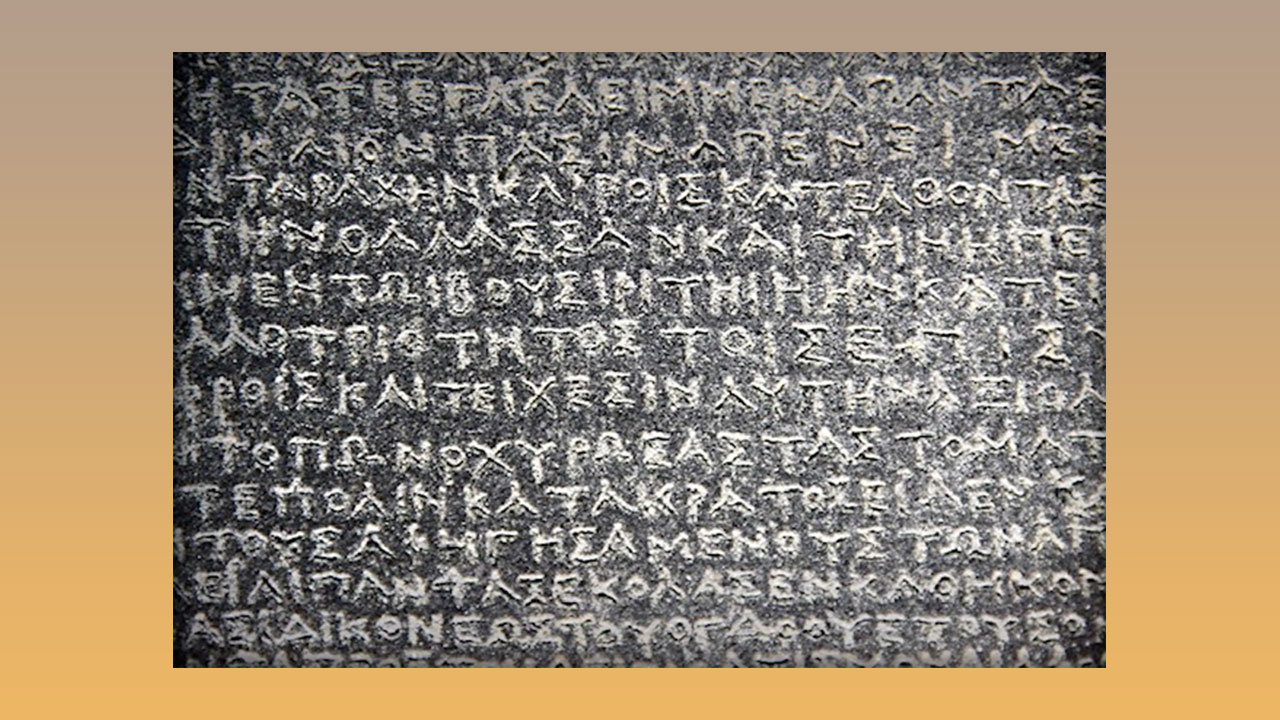 ΤΑΤΕΕΓΛΕΛΕΙΜΜΕΝΑΠΑΝΤΑΕ
ΙΚΑΙΟΝΠΑΣΙΝΑΠΕΝΕΙΜΕΝ
ΝΤΑΡΑΧΗΝΚΑΙΡΟΙΣΚΑΤΕΛΘΟΝΤΑΣ
ΤΗΝΘΑΛΑΣΣΑΝΚΑΙΤΗΝΗΠΕΙ
ΗΝΕΝΤΩΙΒΟΥΣΙΡΙΤΗΙΗΗΝΚΑΤΕΙ
ΑΛΛΟΤΡΙΟΤΗΤΟΣΤΟΙΣΕΠΙΣΥ
ΦΡΟΙΣΚΑΙΤΕΙΧΕΣΙΝΑΥΤΗΝΑΞΙΟΛ
ΤΟΠΩΝΟΧΥΡΩΣΑΣΤΑΣΤΟΜΑΤ
ΤΕΠΟΛΙΝΚΑΤΑΚΡΑΤΟΣΕΙΛΕΝ
ΤΟΥΣΑΦΗΓΗΣΑΜΕΝΟΥΣΤΩΝΑΠ
ΑΠΑΝΤΑΣΕΚΟΛΑΣΕΝΚΑΘΗΚΟΝ
ΙΚΟΝΕΩΣΤΟΥΟΓΔΟΟΥΕΤΟΥΣΟ